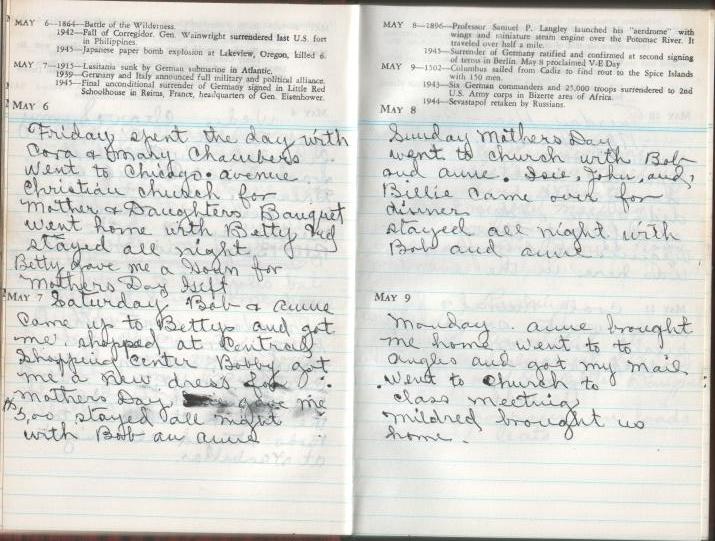 MAY 6—1864—Battle of the Wilderness.
1942—Fall of Corregidor. Gen. Wainwright surrendered last U.S. fort
in Philippines.
1945—Japanese paper bomb explosion at Lakeview, Oregon, killed 6.
MAY 7—1915—Lusitania sunk by German submarine in Atlantic.
1939—Germany and Italy announced full military and political alliance.
1945—Final unconditional surrender of Germany signed in Little Red
Schoolhouse in Reims, France, headquarters of Gen. Eisenhower.
MAY 6
Friday spent the day with
Cora & Mary Chambers
Went to Chicago. avenue
Christian church for
Mother & Daughters Banquet
went home with Betty and
stayed all night
Betty gave me a Gown for
Mothers Day
MAY 7 Saturday Bob & Anne
Came up to Bettys and got
me. shopped at Central
Shopping Center Bobby got
me a New dress for
Mothers Day gave me
$5.00 stayed all night
with Bob an Anne
MAY 8—1896—Professor Samuel P. Langley launched his "aerdrome" with
wings and miniature steam engine over the Potomac River. It
traveled over half a mile.
1945—Surrender of Germany ratified and confirmed at second signing
of terms in Berlin. May 8 proclaimed V-E Day
MAY 9—1502—Columbus sailed from Cadiz to find route to the Spice Islands
with 150 men.
1943—Six German commanders and 25,000 troops surrendered to 2nd
U.S. Army corps in Bizerte area of Africa.
1944—Sevastapol retaken by Russians.
MAY 8
Sunday Mothers Day
went to church with Bob
and Anne. John, and,
Billie Came over for
dinner
stayed all night with
Bob and Anne
MAY 9
Monday. Anne brought
me home went to to
Angles and got my mail
Went to Church to
class meeting
Mildred brought us
home.